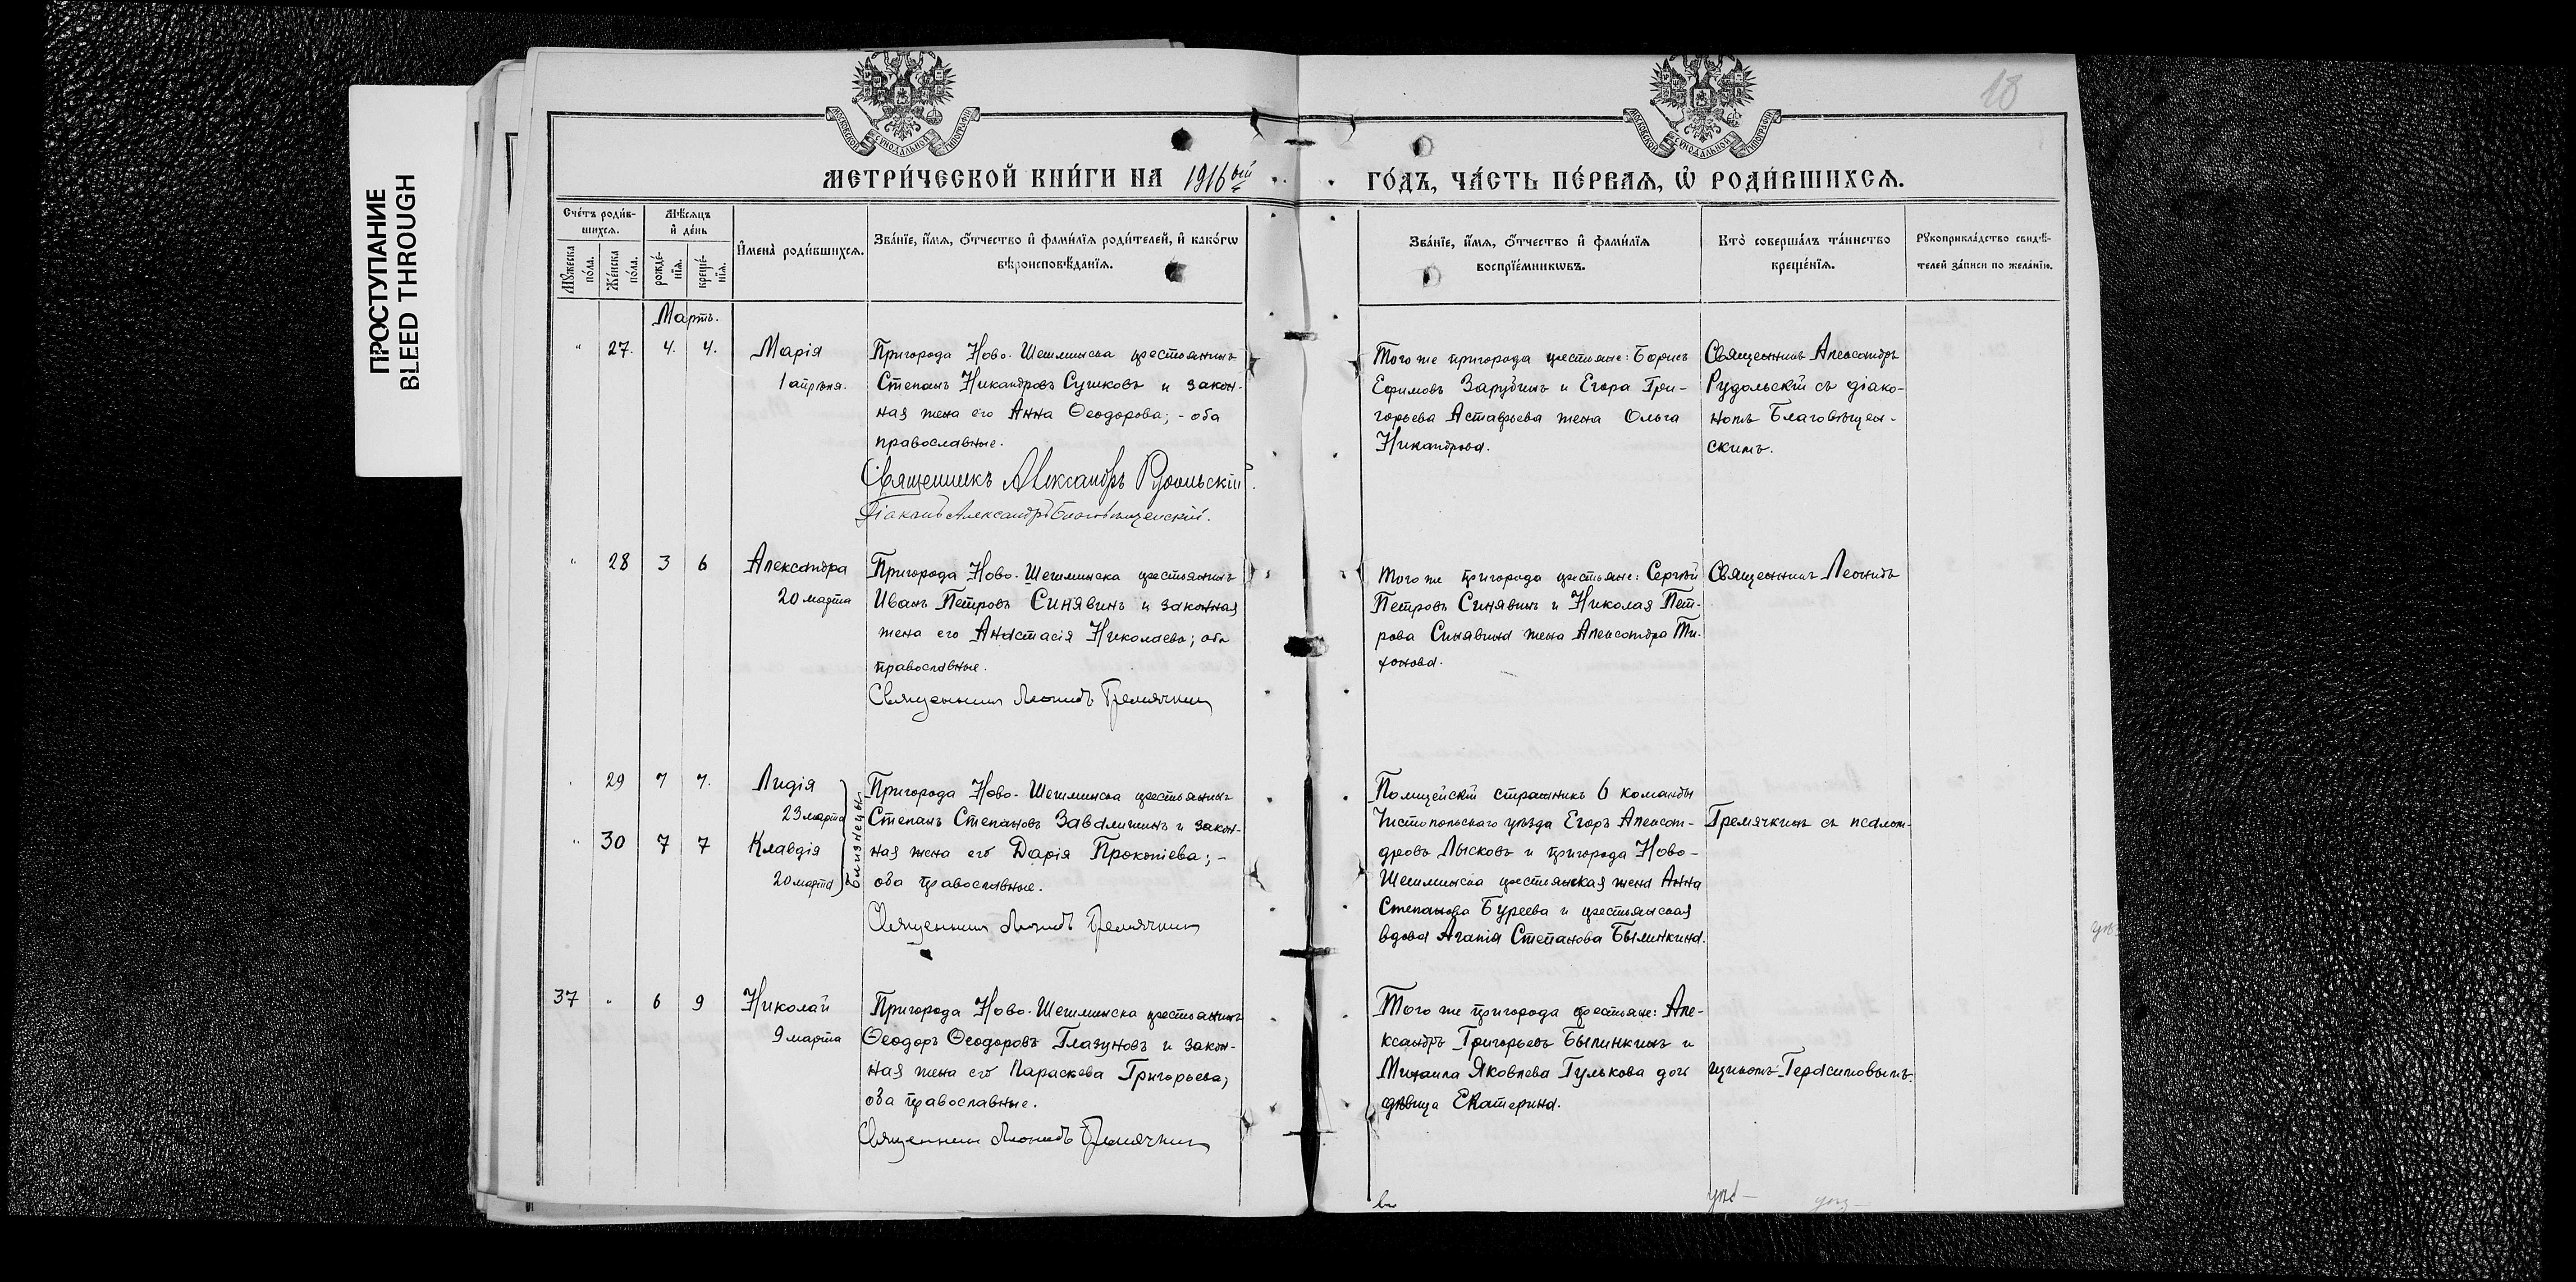 ПРОСТУПАНИЕ
BLEED THROUGH
18
МОСКОВСКОЙ СѴНОДАЛЬНОЙ ТИПОГРАФІИ
МОСКОВСКОЙ СѴНОДАЛЬНОЙ ТИПОГРАФІИ
МЕТРИ́ЧЕСКОЙ КНИ́ГИ НА 1916ый
ГО́ДЪ, ЧА́СТЬ ПЕ́РВАЯ, Ѽ РОДИ́ВШИХСЯ.
Сче́тъ роди́в-
шихся.
Мѣ́сяцъ
и҆ де́нь
Мꙋ́жеска
по́ла.
Же́нска
по́ла.
рожде́-
нїя.
креще́-
нїя.
И҆мена̀ роди́вшихся.
Зва́нїе, и҆́мя, ѻ҆́тчество и҆ фами́лїя роди́телей, и҆ како́гѡ
вѣроисповѣ́данїя.
Зва́нїе, и҆́мя, ѻ҆́тчество и҆ фами́лїя
воспрїе́мникѡвъ.
Кто̀ соверша́лъ та́инство
креще́нїя.
Рꙋкоприкла́дство свидѣ́-
телей за́писи по жела́нїю.
Мартъ.
" 27. 4. 4. Марія
1 апрѣля.
Пригорода Ново-Шешминска крестьянинъ
Степанъ Никандровъ Сушковъ и закон-
ная жена его Анна Ѳеодорова; - оба
православные.
Священникъ Александръ Рудольскій.
Діаконъ Александръ Благовѣщенскій.
Того же пригорода крестьяне: Борисъ
Ефимовъ Зарубинъ и Егора Гри-
горьева Астафьева жена Ольга
Никандрова.
Священникъ Александръ
Рудольскій съ діако-
номъ Благовѣщен-
скимъ.
" 28 3 6 Александра
20 марта
Пригорода Ново-Шешминска крестьянинъ
Иванъ Петровъ Синявинъ и законная
жена его Анастасія Николаева; оба
православные.
Священникъ Леонидъ Гремячкин
Того же пригорода крестьяне: Сергѣй
Петровъ Синявинъ и Николая Пет-
рова Синявина жена Александра Ти-
хонова.
Священникъ Леонидъ
29 7 7. Лидія
23 марта
" 30 7 7 Клавдія
20 марта
Близнецы
Пригорода Ново-Шешминска крестьянинъ
Степанъ Степановъ Завалишинъ и закон-
ная жена его Дарія Прокопіева; -
оба православные.
Священникъ Леонидъ Гремячкин
Полицейскій стражникъ 6 команды
Чистопольскаго уѣзда Егоръ Алексан-
дровъ Лысковъ и пригорода Ново-
Шешминска крестьянская жена Анна
Степанова Буреева и крестьянская
вдова Агапія Степанова Былинкина.
Гремячкинъ съ псалом-
37 " 6 9 Николай
9 марта
Пригорода Ново-Шешминска крестьянинъ
Ѳеодоръ Ѳеодоровъ Глазуновъ и закон-
ная жена его Параскева Григорьева;
оба православные.
Священникъ Леонидъ Гремячкин
Того же пригорода крестьяне: Але-
ксандръ Григорьевъ Былинкинъ и
Михаила Яковлева Гулькова дочь
дѣвица Екатерина.
щикомъ Герасимовымъ.